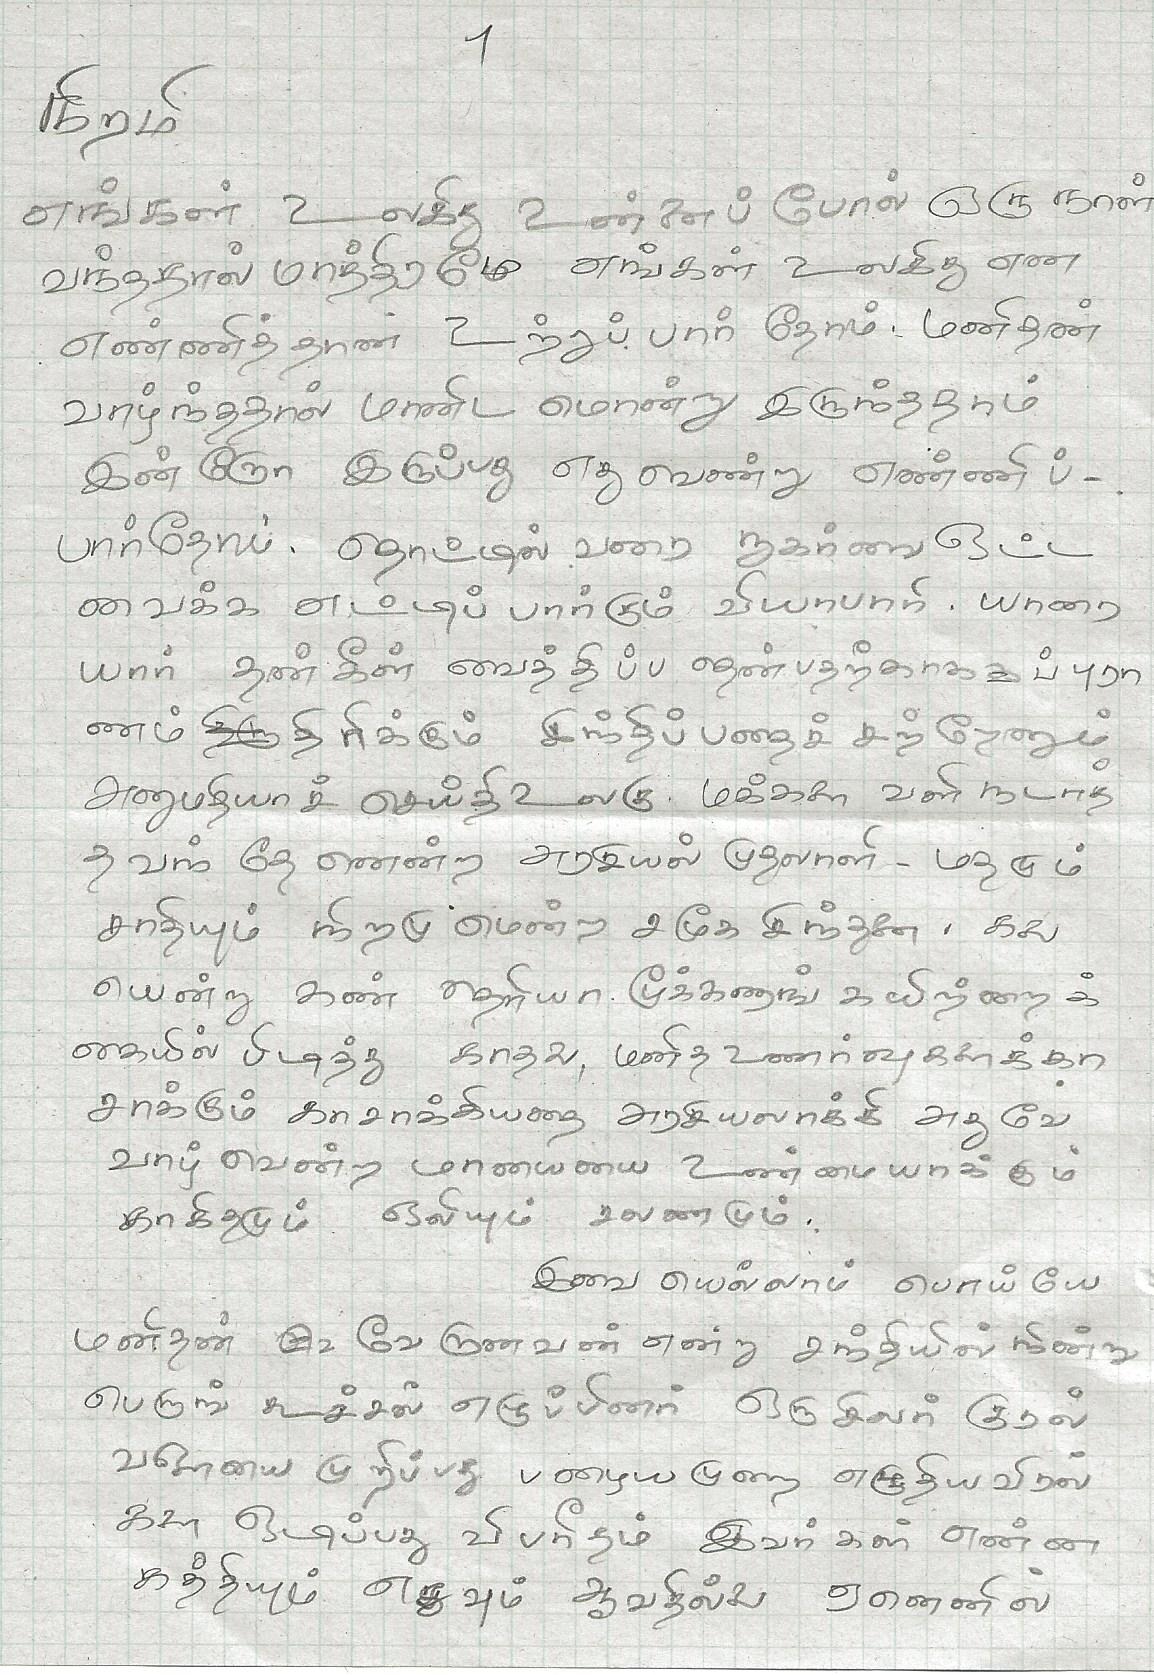 1
நிறம்
எங்கள் உலகிது உன்னைப் போல் ஒரு நாள்
வந்ததால் மாத்திரமே எங்கள் உலகிது என
எண்ணித்தான் உற்றுப் பார் தோம். மனிதன்
வாழ்ந்ததால் மானிட மொன்று இருந்ததாம்
இன்றோ இருப்பது எது வென்று எண்ணிப் -
பார்தோம். தொட்டில் வரை நுகர்வை ஒட்ட
வைக்க எட்டிப் பார்கும் வியாபாரி. யாரை
யார் தன் கீள் வைத்திப்ப தென்பதற்காகக் ப்புரா
ணம் திரிக்கும் இந்திப்பதைச் சற்றேனும்
அனுமதியாச் செய்தி உலகு. மக்களை வளி நடாத்
தவந் தேனென்ற அரசியல் முதலாளி - மதமும்
சாதியும் நிறமு மென்ற சமூக இந்தனை. கலை
யென்று கண் தெரியா மூக்கணாங் கயிற்றைக்
கையில் பிடித்து காதலை, மனித உணர்வுகளைக்கா
சாக்கும் காசாக்கியதை அரசியலாக்கி அதுவே
வாழ் வென்ற மாயையை உண்மையாக்கும்
காகிதமும் ஒலியும் சலனமும்.
இவை யெல்லாம் பொய்யே
மனிதன் வேறானவன் என்று சந்தியில் நின்று
பெருங் கூச்சல் எழுப்பினர் ஒரு சிலர் குரல்
வளையை முறிப்பது பழையமுறை எழுதியவிரல்
களை ஒடிப்பது விபரீதம் இவர்கள் என்ன
கத்தியும் எதுவும் ஆவதில்லை ஏனெனில்